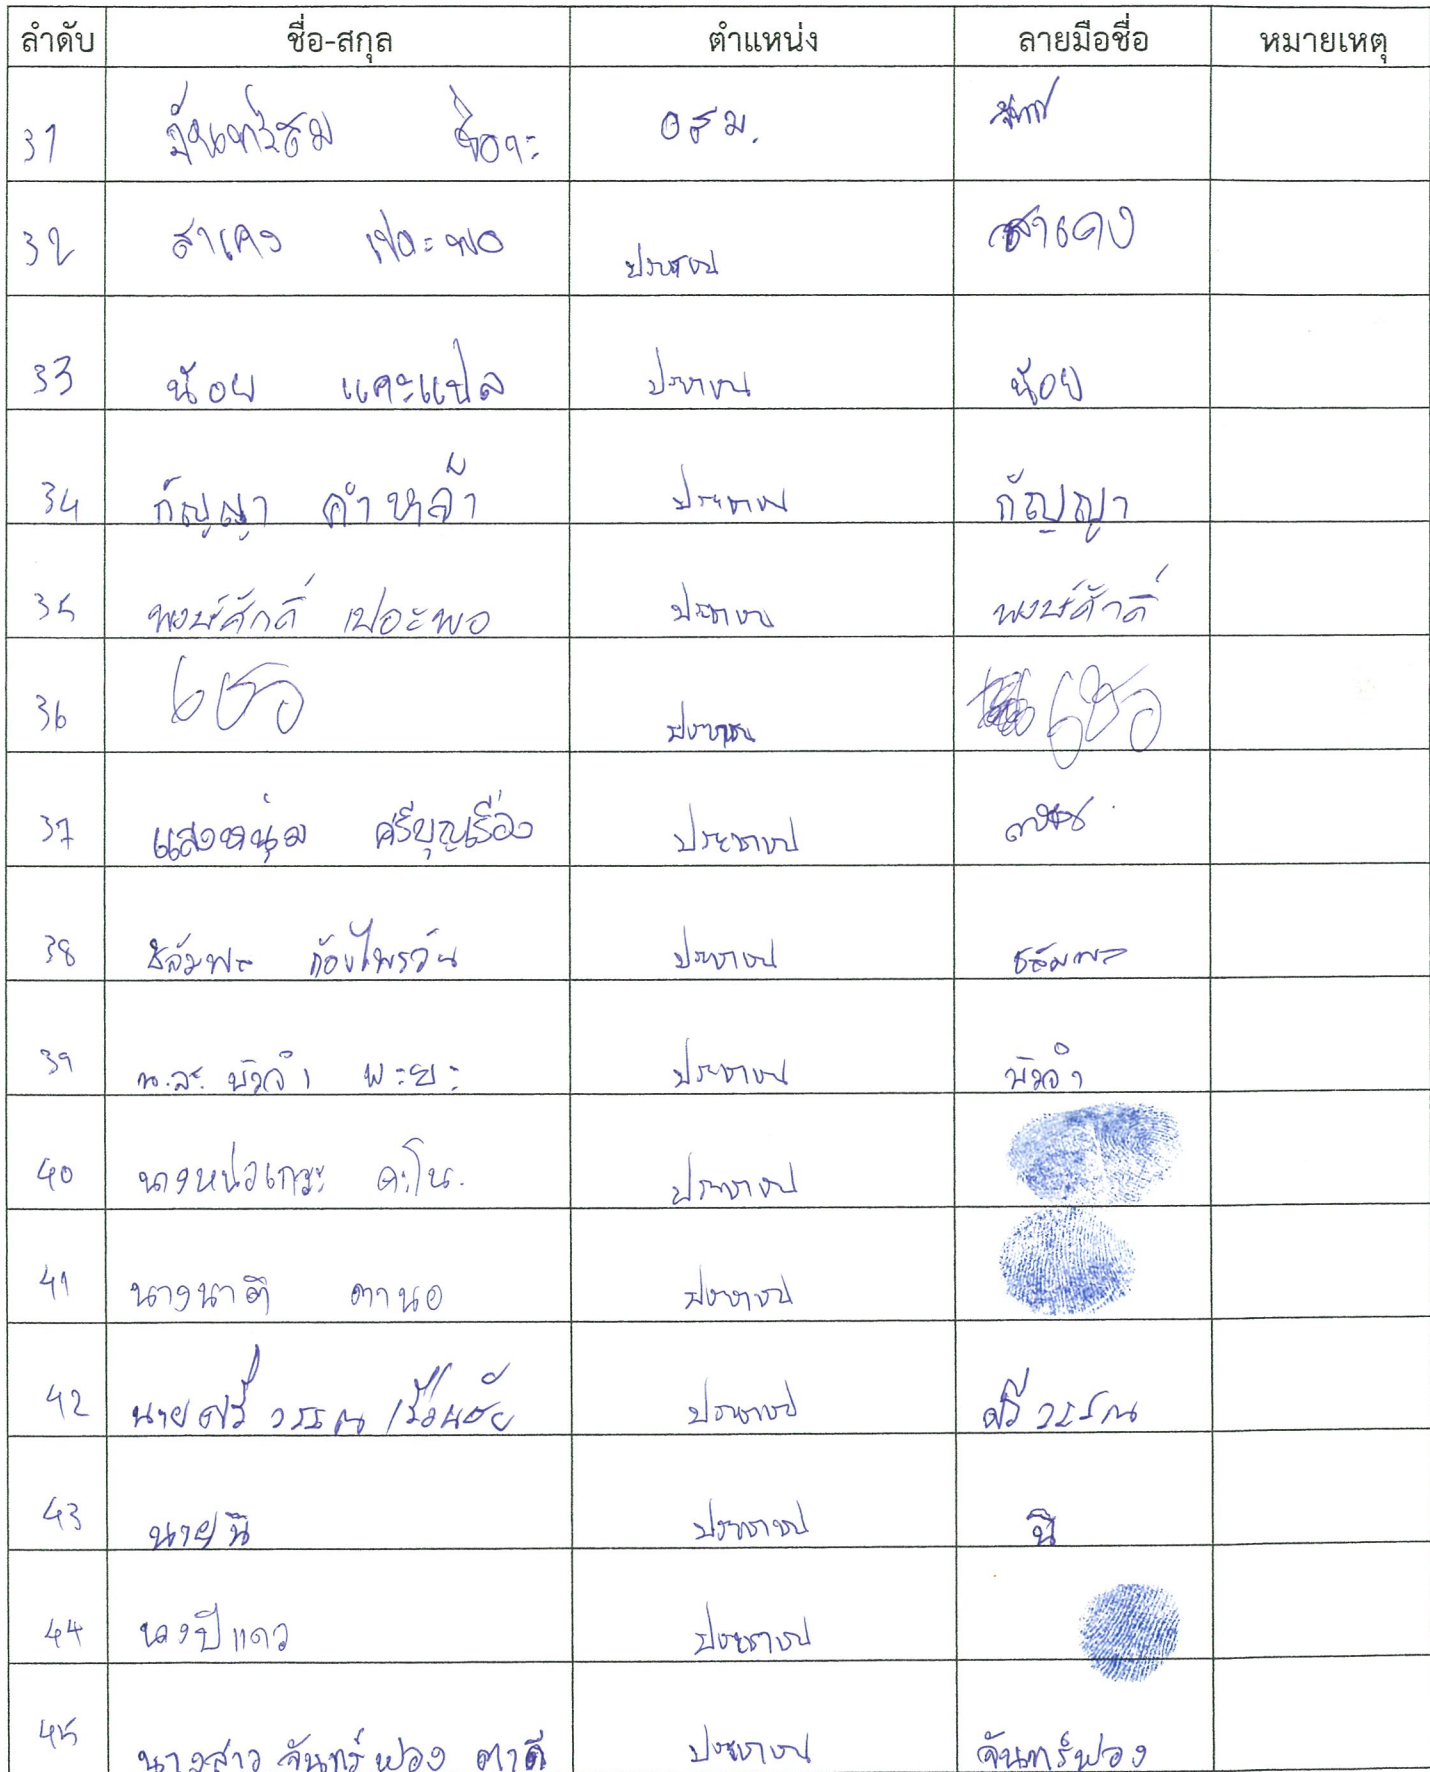 ลำดับ ชื่อ-สกุล ตำแหน่ง ลายมือชื่อ หมายเหตุ
31 อสม.
32 สาเคง เปอะพอ ประชาชน สาเคง
33 น้อย แคะแปล ประชาชน น้อย
34 กัญญา คำหล้า ประชาชน กัญญา
35 พงษ์ศักดิ์ เปอะพอ ประชาชน พงษ์ศักดิ์
36 เชอ ประชาชน เชอ
37 แสงหนุ่ม ศรีบุญเรื่อง ประชาชน
38 ประชาชน
39 น.ส. บัวจำ พะยะ ประชาชน บัวจำ
40 นางหน่อเกระ คะโน. ประชาชน
41 นางนาตี ตานอ ประชาชน
42 นายศรีวรรณ เรือนชัย ประชาชน ศรีวรรณ
43 นายนิ ประชาชน นิ
44 นางปีแดว ประชาชน
45 นางสาว จันทร์ฟอง ตาดี ประชาชน จันทร์ฟอง